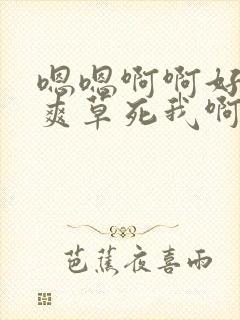 嗯嗯啊啊好
爽草死我啊
芭蕉夜喜雨